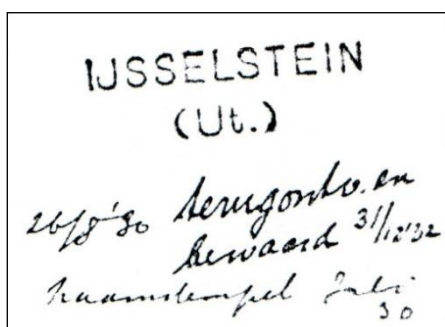 IJSSELSTEIN
(Ut.)
26/8 '30 terugontv. en
bewaard 31/12 '32
naamstempel Juli
30